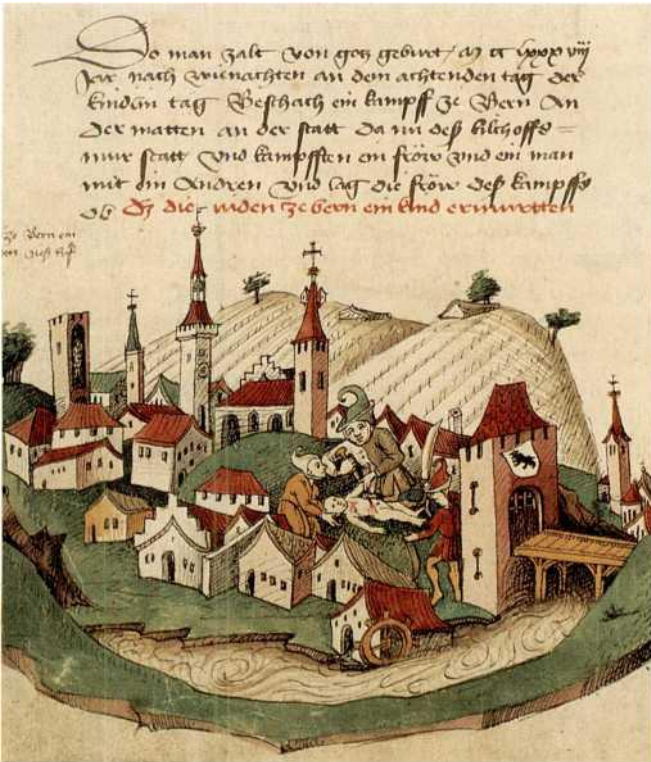 So man zalt von gotz geburt / M cc lxxx viij
Jar nach wienachten an dem achtenden tag der
kindlin tag Beschach ein kampff ze Bern An
Der matten an der statt Da nu deß kilchoffs =
mur statt Vnd kampfften ein fröw vnd ein man
mit ein Andren Vnd lag die fröw deß kampffs
ob Dz die iuden ze bern ein kind ermurtten
ze Bern ein